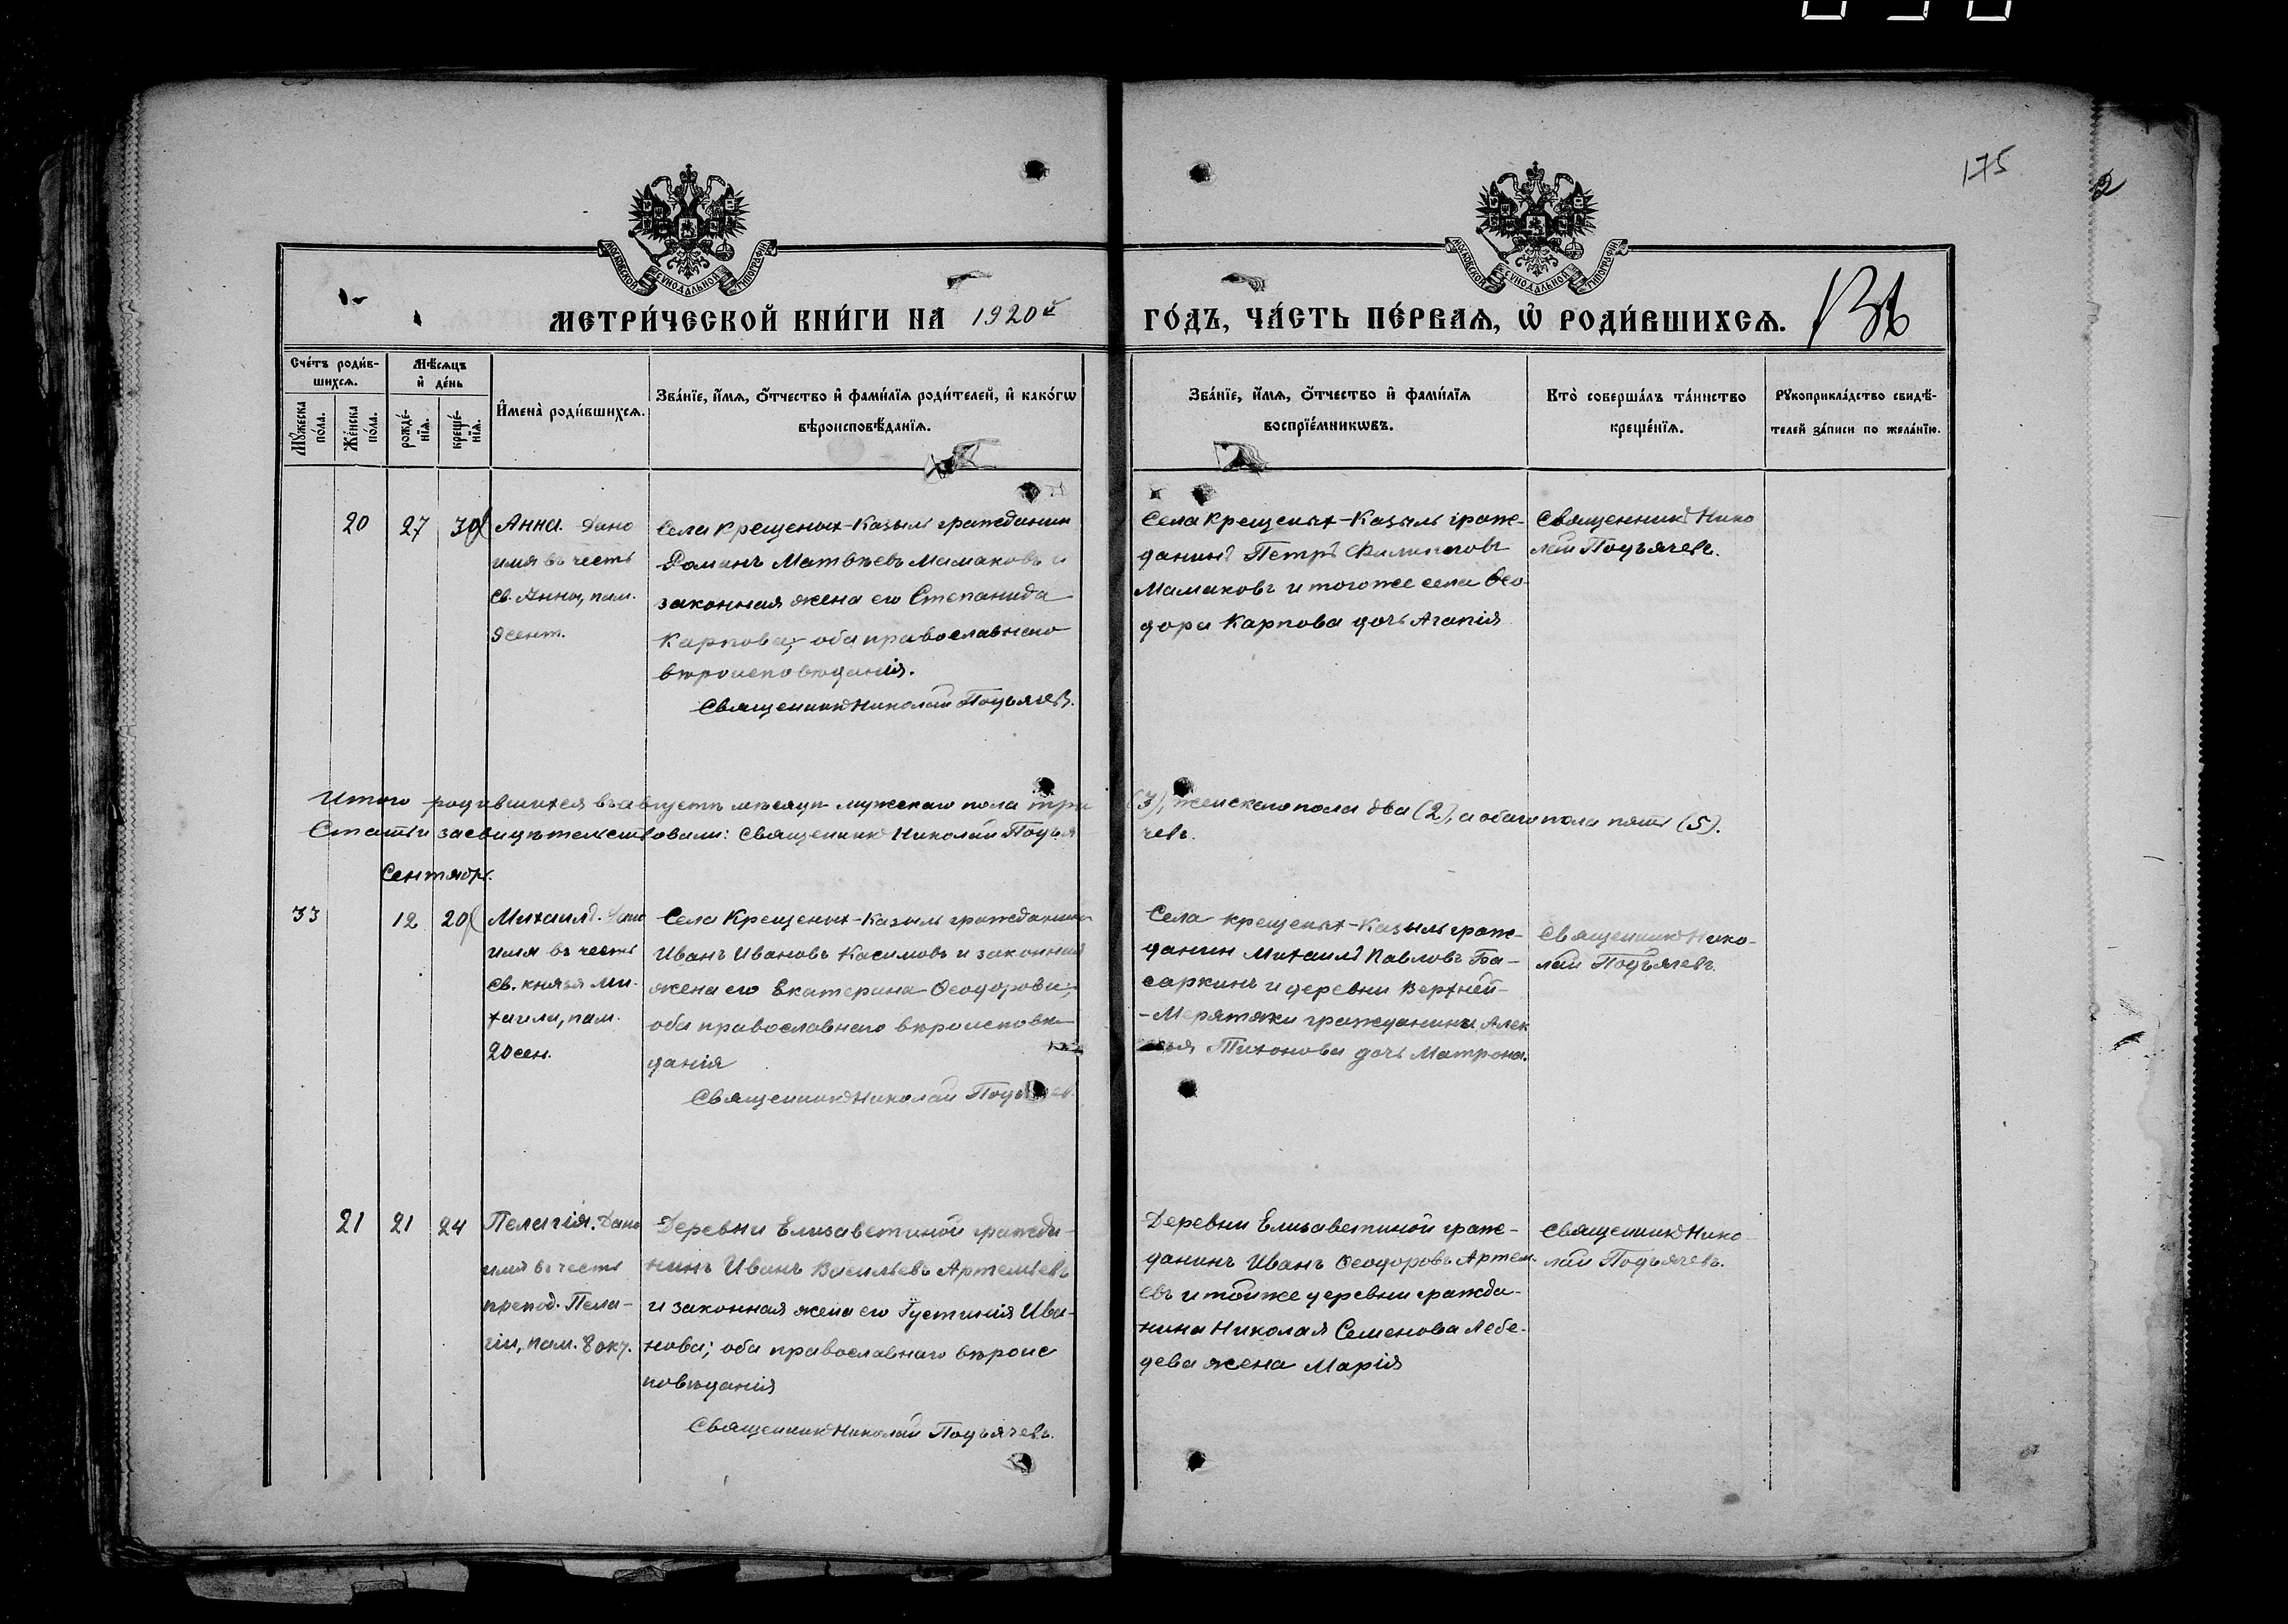 175
2
МОСКОВСКОЙ СѴНОДАЛЬНОЙ ТИПОГРАФІИ
МОСКОВСКОЙ СѴНОДАЛЬНОЙ ТИПОГРАФІИ
МЕТРИ́ЧЕСКОЙ КНИ́ГИ НА 1920й
ГО́ДЪ, ЧА́СТЬ ПЕ́РВАѦ, Ѡ҆ РОДИ́ВШИХСѦ. 136
Сче́тъ роди́в-
шихсѧ.
Мѣ́сѧцъ
и҆ де́нь
Мꙋ́жеска
по́ла.
Же́нска
по́ла.
рожде́-
нїѧ.
креще́-
нїѧ.
И҆мена̀ роди́вшихсѧ.
Зва́нїе, и҆́мѧ, ѻ҆́тчество и҆ фами́лїѧ роди́телей, и҆ како́гѡ
вѣроисповѣ́данїѧ.
Зва́нїе, и҆́мѧ, ѻ҆́тчество и҆ фами́лїѧ
воспрїе́мникѡвъ.
Кто̀ соверша́лъ та́инство
креще́нїѧ.
Рꙋкоприкла́дство свидѣ́-
телей за́писи по жела́нїю.
20 27 30
Анна. Дано
имя въ честь
св. Анны, пам.
сент.
Села Крещеных-Казыль гражданин
Романъ Матвѣевъ Мамаковъ и
законная жена его Степанида
Карпова; оба православнаго
вѣроисповѣданія.
Священникъ Николай Подъячевъ.
Села Крещеных-Казыль граж-
данинъ Петръ Филипповъ
Мамаковъ и того же села Ѳео-
дора Карпова дочь Агапія
Священникъ Нико
лай Подъячевъ.
Итого родившихся въ августѣ мѣсяцѣ мужескаго пола три (3), женскаго пола два (2), а обаго пола пять (5).
Статьи засвидѣтельствовали: Священникъ Николай Подъя
чевъ.
Сентябрь.
33 12 20
Михаилъ. Дано
имя въ честь
св. князя Ми-
хаила, пам.
20 сен.
Села Крещеных-Казыль гражданинъ
Иванъ Ивановъ Касимовъ и законная
жена его Екатерина Ѳеодорова;
оба православнаго вѣроисповѣ-
данія
Священникъ Николай Подъячев
Села Крещеных-Казыль граж-
данин Михаилъ Павловъ Ба-
саркинъ и деревни Верхней-
-Меретяки гражданина Алек
Тихонова дочь Матрона.
Священникъ Нико-
лай Подъячевъ.
21 21 24
Пелагія. Дано
имя въ честь
препод. Пела-
гіи, пам. 8 окт.
Деревни Елизаветиной гражда-
нинъ Иванъ Васильевъ Артемьевъ
и законная жена его Іустинія Ива-
нова; оба православнаго вѣроис
повѣданія
Священникъ Николай Подъячевъ.
Деревни Елизаветиной граж-
данинъ Иванъ Ѳеодоровъ Артемь-
евъ и той же деревни гражда-
нина Николая Семенова Лебе-
дева жена Марія
Священникъ Нико-
лай Подъячевъ.